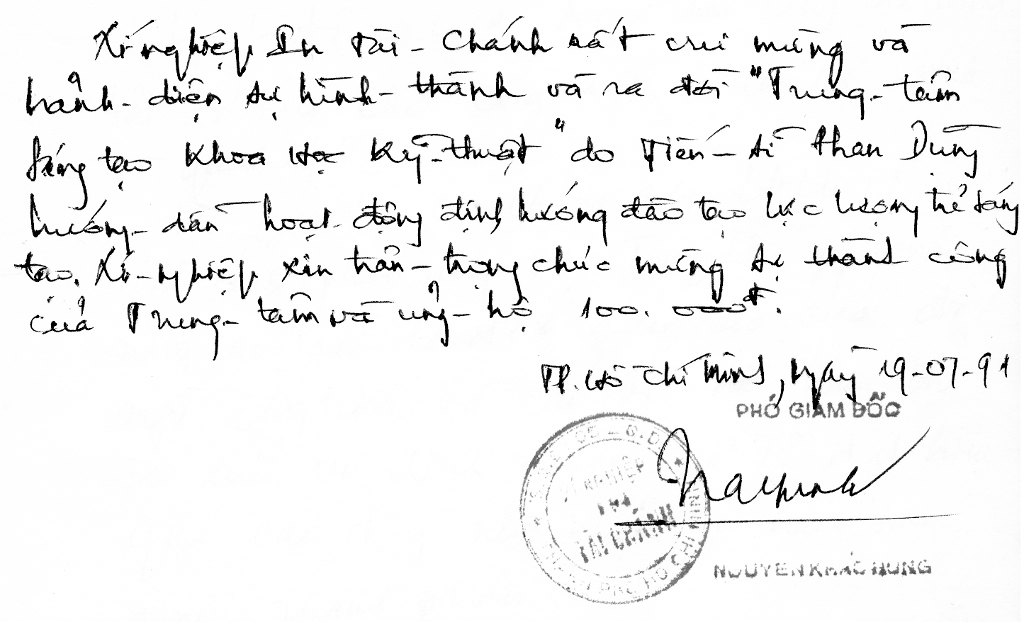 Xí nghiệp In Tài - Chánh rất vui mừng và
hảnh - diện sự hình - thành và ra đời "Trung - tâm
sáng tạo Khoa Học Kỹ - thuật" do Tiến - sĩ Phan Dũng
hướng - dẫn hoạt động định hướng đào tạo lực lượng trẻ sáng
tạo. Xí - nghiệp xin trân - trọng chúc mừng sự thành công
của Trung - tâm và ủng - hộ 100.000đ.
TP. Hồ Chí Minh, ngày 19-07-91
PHÓ GIÁM ĐỐC
XÍ NGHIỆP
IN
TÀI CHÁNH
THÀNH PHỐ HỒ CHÍ MINH
NGUYỄN KHẮC HÙNG